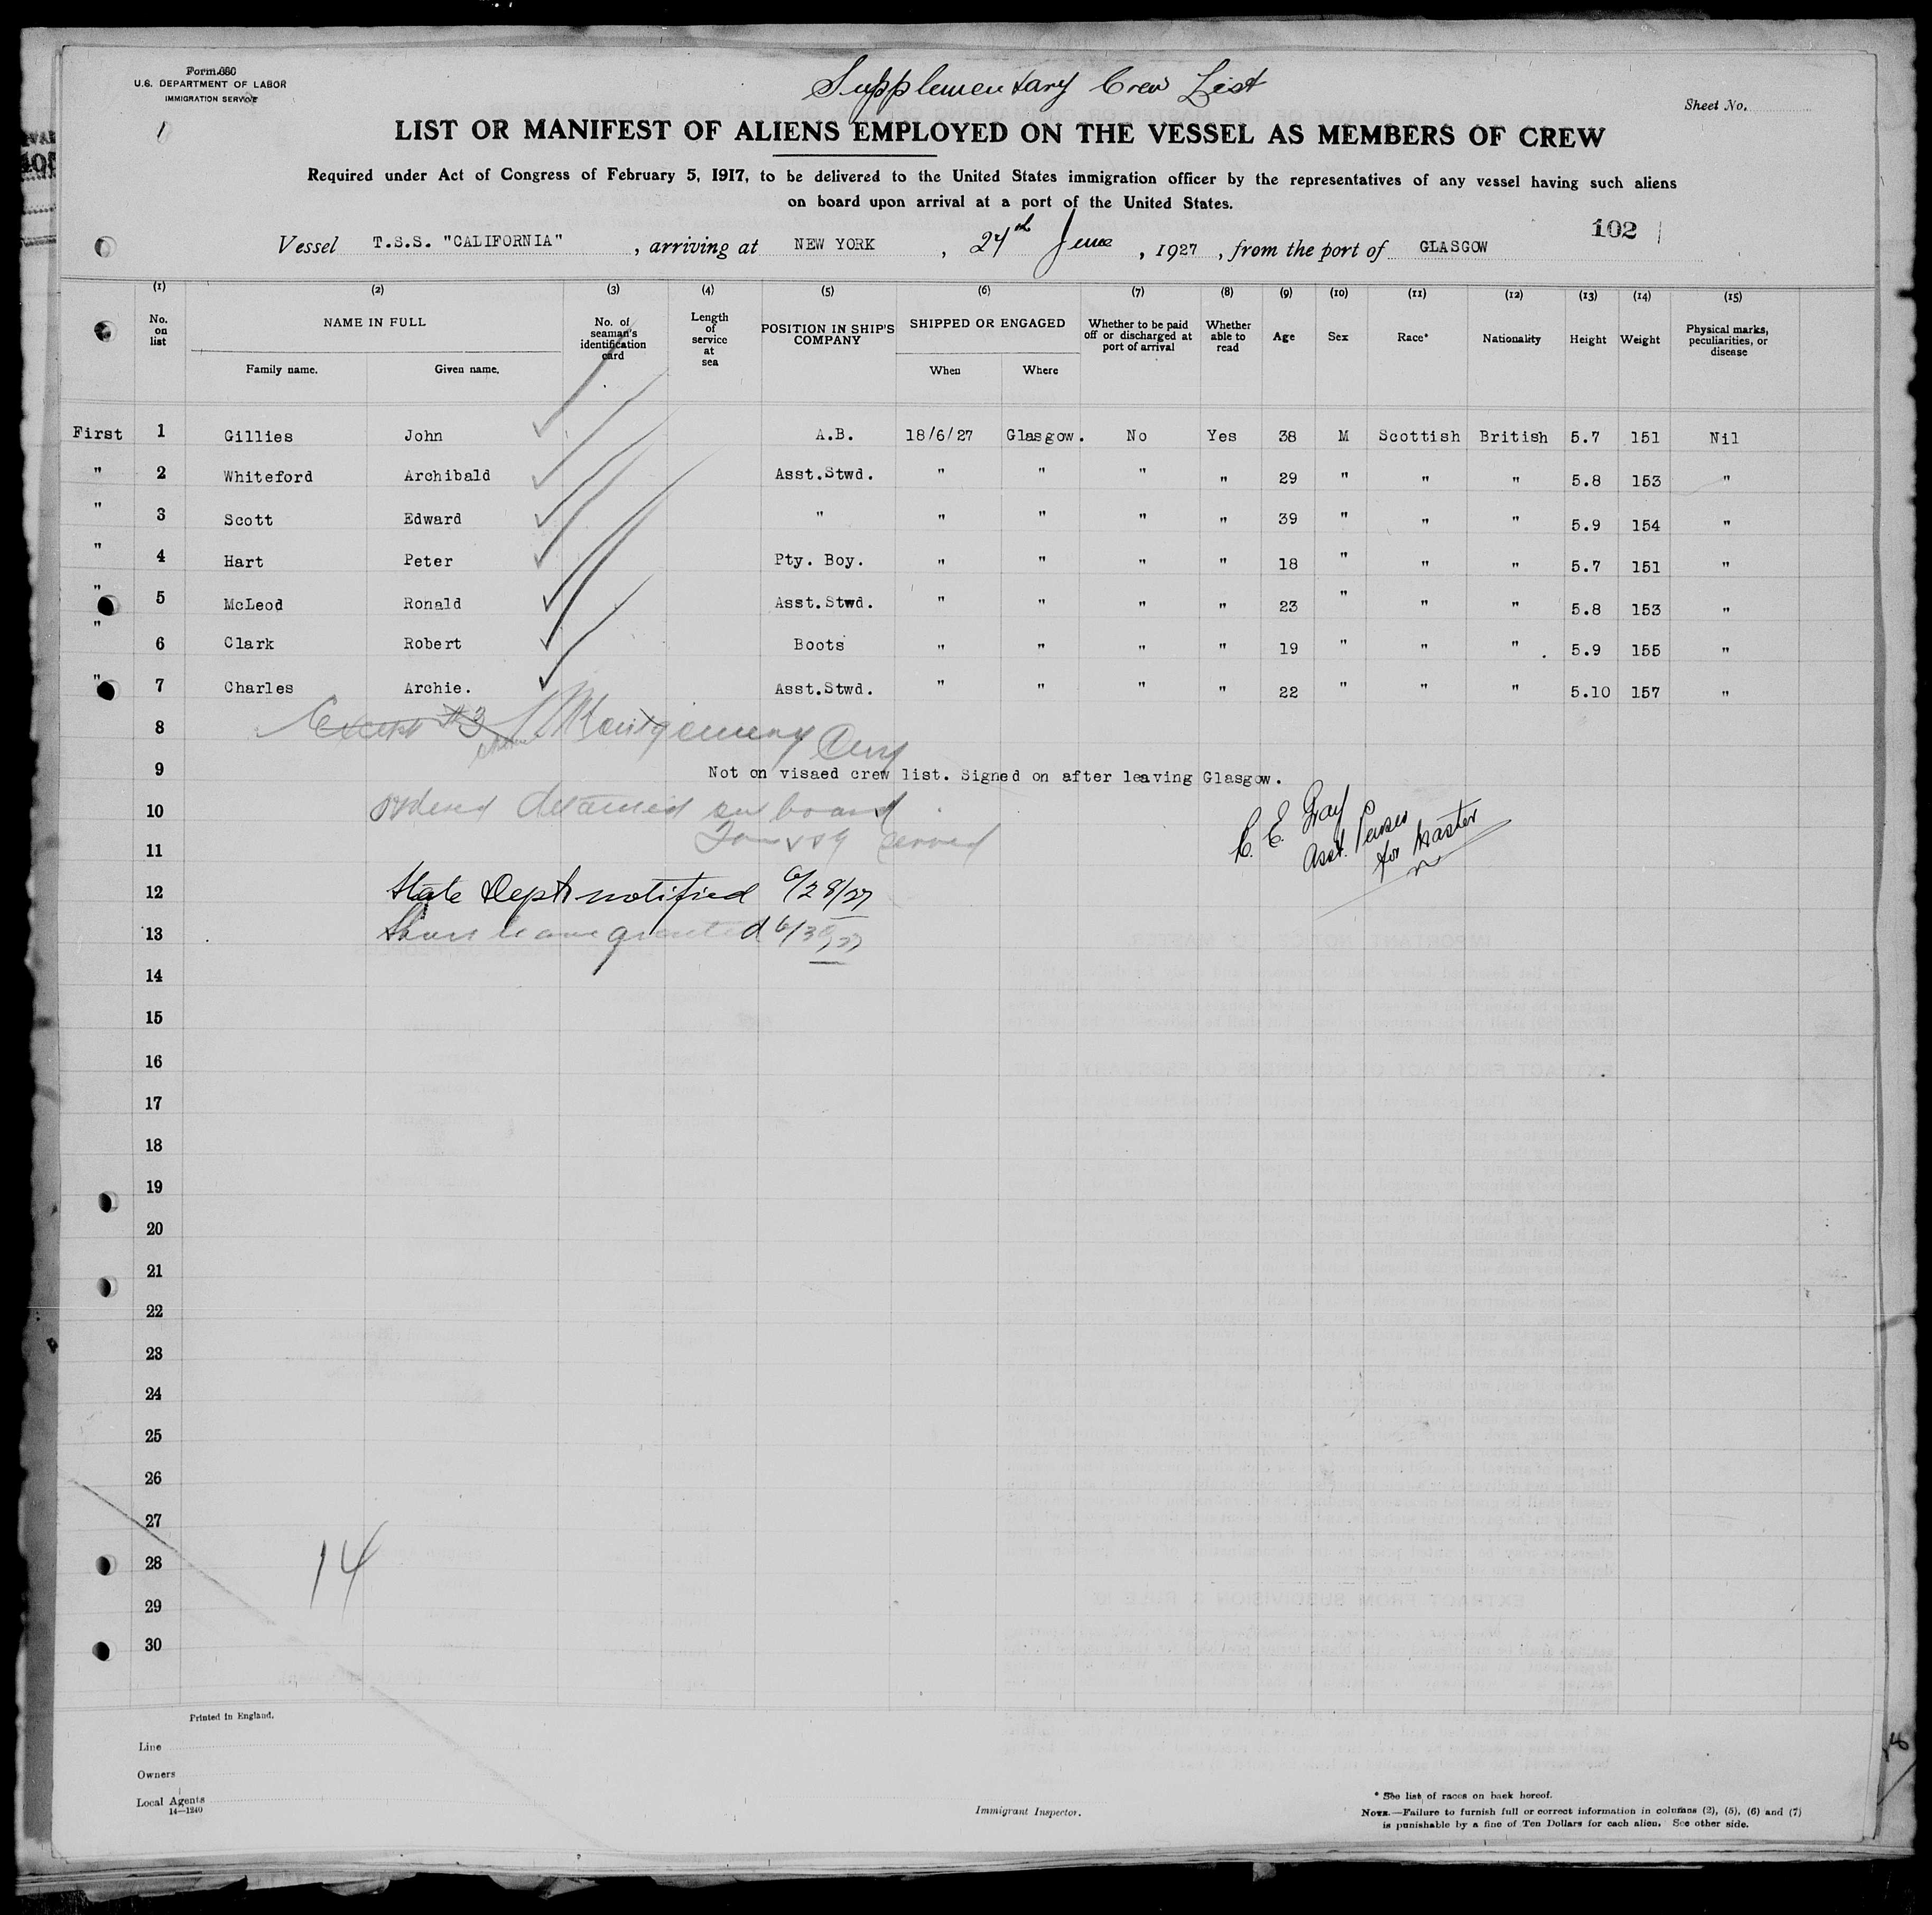 Form 680
U.S. DEPARTMENT OF LABOR
IMMIGRATION SERVICE
Supplementary Crew List
Sheet No.
LIST OR MANIFEST OF ALIENS EMPLOYED ON THE VESSEL AS MEMBERS OF CREW
Required under Act of Congress of February 5, 1917, to be delivered to the United States immigration officer by the representatives of any vessel having such aliens
on board upon arrival at a port of the United States.
102
Vessel T.S.S. "CALIFORNIA", arriving at NEW YORK, 27th June, 1927, from the port of GLASGOW
(1) (2) (3) (4) (5) (6) (7) (8) (9) (10) (11) (12) (13) (14) (15)
No. on list NAME IN FULL No. of seaman's identification card Length of service at sea POSITION IN SHIP'S COMPANY SHIPPED OR ENGAGED Whether to be paid off or discharged at port of arrival Whether able to read Age Sex Race* Nationality Height Weight Physical marks, peculiarities, or disease
Family name. Given name. When Where
First 1 Gillies John A.B. 18/6/27 Glasgow. No Yes 38 M Scottish British 5.7 151 Nil
" 2 Whiteford Archibald Asst.Stwd. " " " " 29 " " " 5.8 153 "
" 3 Scott Edward " " " " " 39 " " " 5.9 154 "
" 4 Hart Peter Pty. Boy. " " " " 18 " " " 5.7 151 "
" 5 McLeod Ronald Asst.Stwd. " " " " 23 " " " 5.8 153 "
" 6 Clark Robert Boots " " " " 19 " " " 5.9 155 "
" 7 Charles Archie. Asst.Stwd. " " " " 22 " " " 5.10 157 "
8 Except #3 Montgomery
9 Not on visaed crew list. Signed on after leaving Glasgow.
10 Ordered detained on board
C. E. Gray
Asst. Purser
for Master
11 served
12 State Dept notified 6/28/27
13 Shore leave granted 6/30/27
14
15
16
17
18
19
20
21
22
23
24
25
26
27
28
14
29
30
Printed in England.
Line
Owners
Local Agents
14—1240
Immigrant Inspector.
* See list of races on back hereof.
NOTE.—Failure to furnish full or correct information in columns (2), (5), (6) and (7)
is punishable by a fine of Ten Dollars for each alien. See other side.